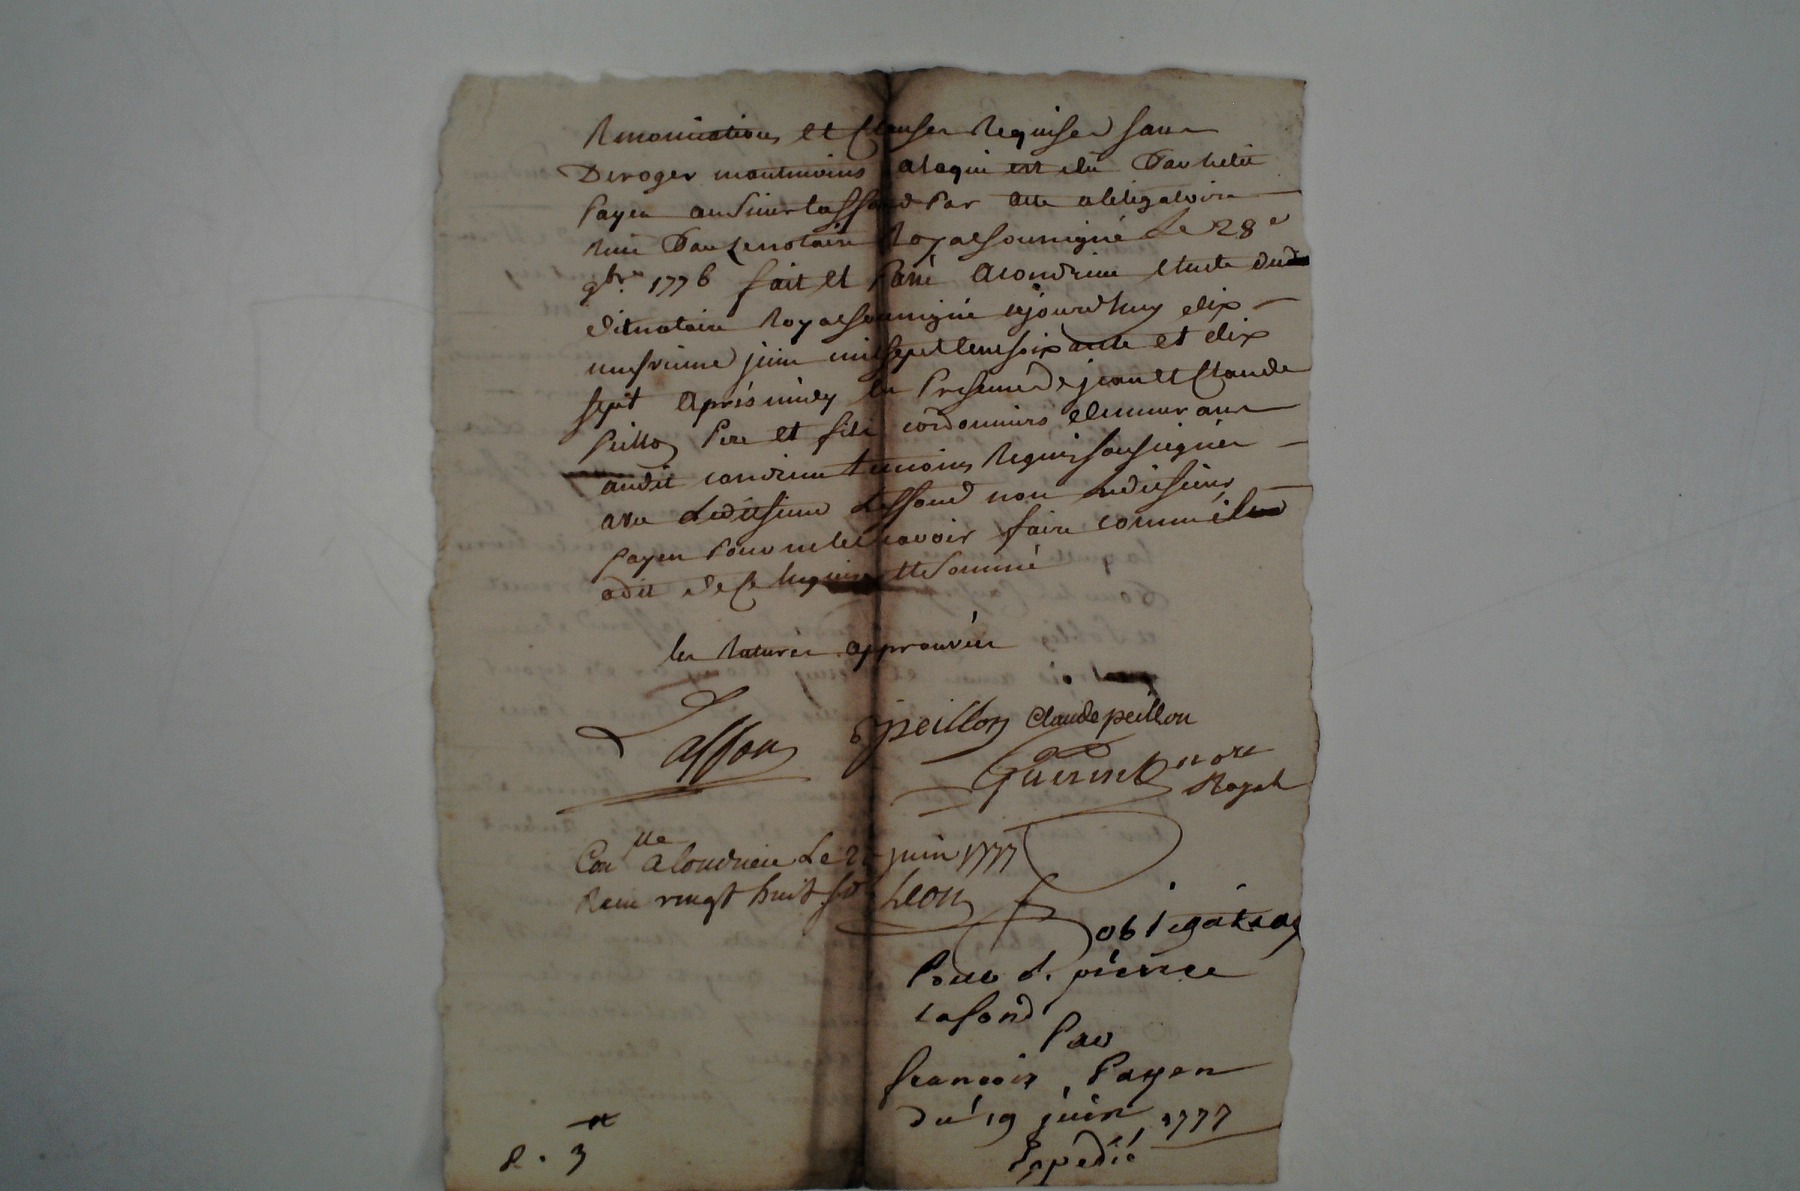 Renonciations et Clauses Requises sans
Deroger neantmoins a ce qui est du Par ledit
Payen au Sieur Laffond Par acte obligatoire
Recu Par Le notaire Royal soussigné Le 28e
9bre 1776 fait et Passé a Condrieu etude dud
dit notaire Royal soussigné cejourdhuy dix
neufvieme juin mil sept cent soixante et dix
sept apres midy En Presence de jean et Claude
Peillon Pere et fils cordonniers demeurant
audit Condrieu temoins Requis soussignés
avec Ledit sieur Laffond non Ledit sieur
Payen Pour ne le scavoir faire comme il
a dit de ce Requis et sommé
les Ratures approuvées
Laffon
j peillon Claude peillon
Guerinet nore
Royal
Conlle a Condrieu Le 2 juin 1777
Recu vingt huit s Leon
obligation
Pour s. pierre
Lafond
Par
francois Payen
du 19 juin 1777
Expedié
8 . 3